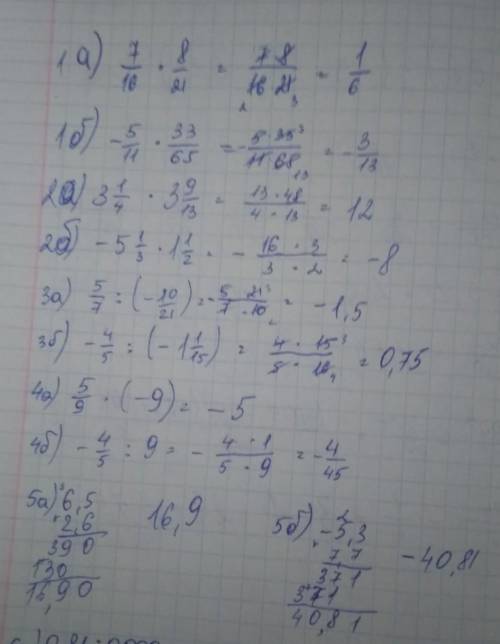 1а) 7/16 · 8/21 = 7 8/16 21 2 3 = 1/6
1б) -5/11 · 33/65 = -5·33 3/11·65 13 = -3/13
2а) 3 1/4 · 3 9/13 = 13·48/4·13 = 12
2б) -5 1/3 · 1 1/2 = -16·3/3·2 = -8
3а) 5/7 : (-10/21) = -5·21 3/7·10 2 = -1,5
3б) -4/5 : (-1 1/15) = 4·15 3/5·16 4 = 0,75
4а) 5/9 · (-9) = -5
4б) -4/5 : 9 = -4·1/5·9 = -4/45
5а) 6,5
2,6
390
130
16,90
16,9
5б) -5,3
7,7
371
371
40,81
-40,81